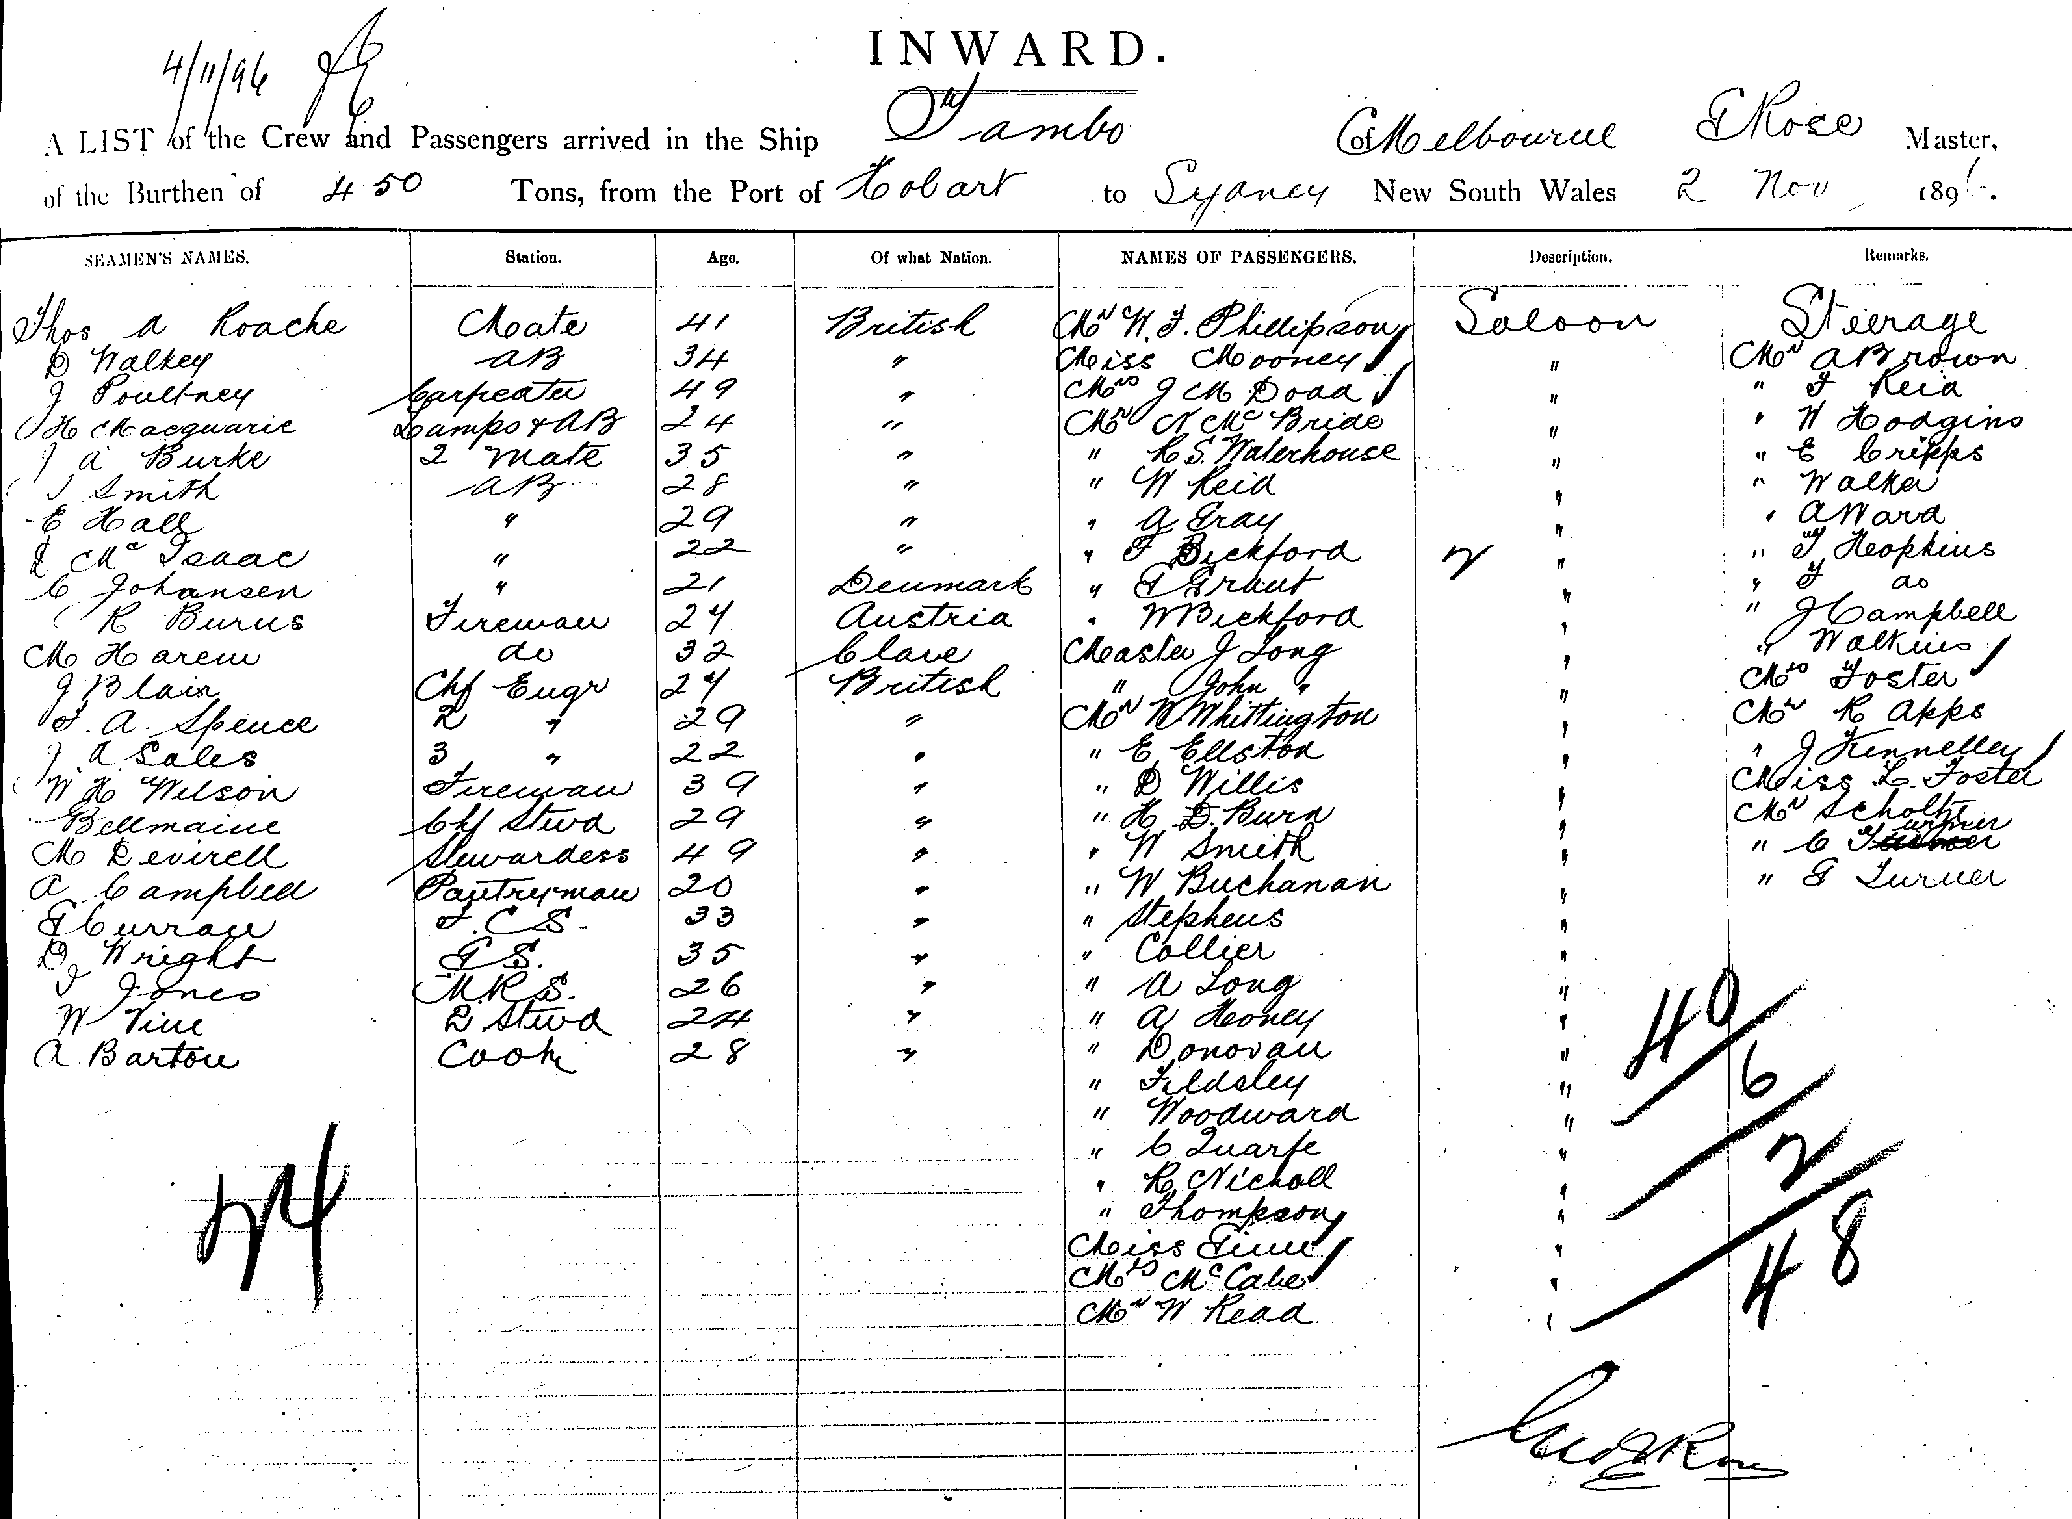 4/11/96
INWARD.
A LIST of the Crew and Passengers arrived in the Ship Tambo of Melbourne G Rose Master,
of the Burthen of 450 Tons, from the Port of Hobart to Sydney New South Wales 2 Nov 1896.
SEAMEN'S NAMES. Station. Age. Of what Nation. NAMES OF PASSENGERS. Description. Remarks.
Thos A Roache Mate 41 British Mr W. J. Phillipson Saloon Steerage
D Walkey AB 34 " Miss Mooney " Mr A Brown
J Poultney Carpenter 49 " Mrs J M Dodd " " J Reid
H Macquarie Lamps & AB 24 " Mr N McBride " " W Hodgins
J A Burke 2 Mate 35 " " R S. Waterhouse " " E Cripps
J Smith AB 28 " " W Reid " " Walker
E Hall " 29 " " G Gray " " A Ward
McIsaac " 22 " " F Bickford 2 " " T Hopkins
C Johansen " 21 Denmark " G Grant " " T do
R Burns Fireman 24 Austria " W Bickford " " J Campbell
M Harem do 32 Master J Long " " Walkins
J Blair Chf Engr 27 British " John " " Mrs Foster
F. A. Spence 2 " 29 " Mr W Whittington " Mr R Apps
J A Sales 3 " 22 " " E Ellston " " J Kennelley
W H Wilson Fireman 39 " " D Willis " Miss L. Foster
Bellmaine Chf Stwd 29 " " H D. Burn " Mr Scholtz
M Devirell Stewardess 49 " " W Smith " " C Turner
A Campbell Pantryman 20 " " W Buchanan " " G Turner
G Curran F.C.S. 33 " " Stephens "
D Wright G S. 35 " " Collier "
J Jones M R S. 26 " " A Long "
W Vine 2 Stwd 24 " " A Honey "
A. Barton Cook 28 " " Donovan "
" Fildsley "
" Woodward "
" C Quarfe "
" R Nicholl "
" Thompson "
Miss "
Mrs McCabe "
Mr W Read "
40
6
2
48
24
Geo J Rose